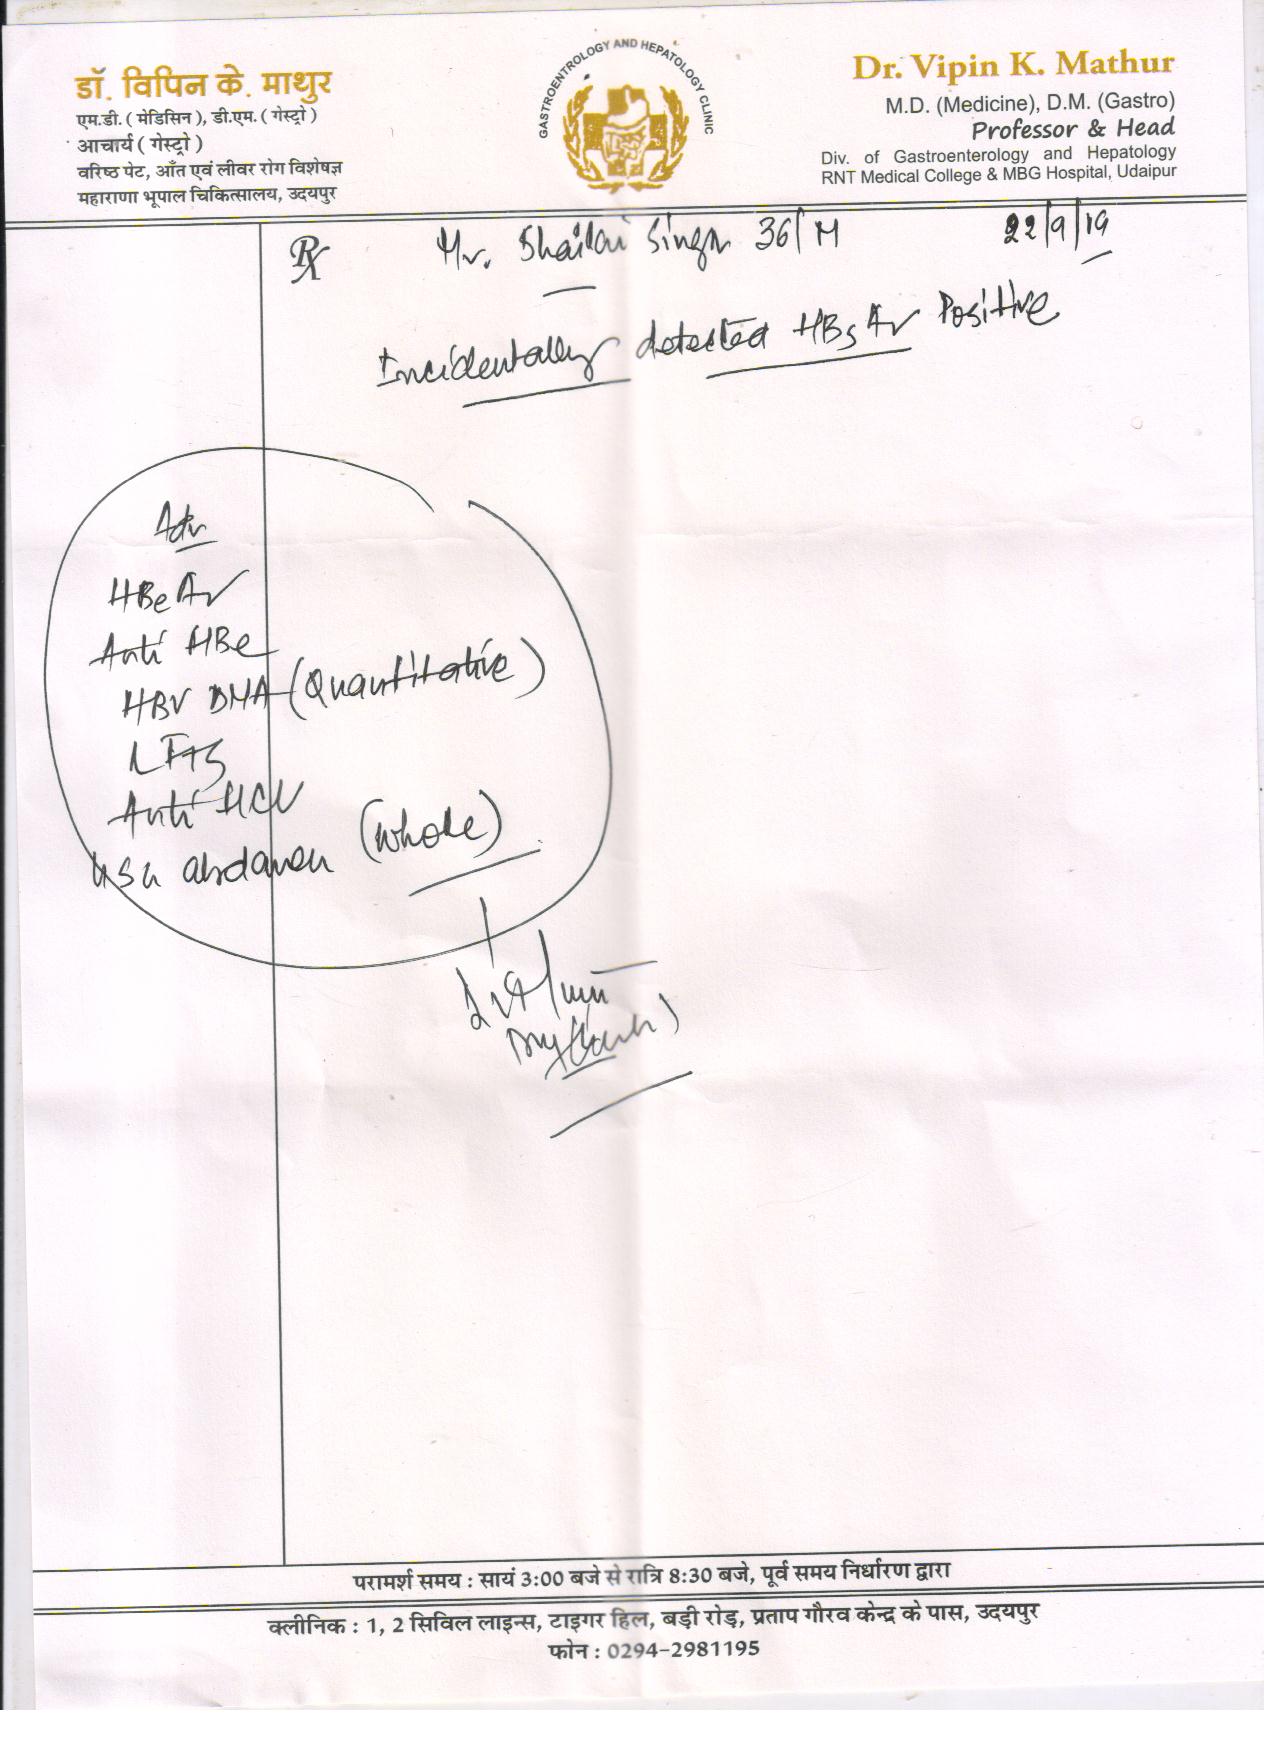 डॉ. विपिन के. माथुर
एम.डी. ( मेडिसिन ), डी.एम. ( गेस्ट्रो )
आचार्य ( गेस्ट्रो )
वरिष्ठ पेट, आँत एवं लीवर रोग विशेषज्ञ
महाराणा भूपाल चिकित्सालय, उदयपुर
GASTROENTROLOGY AND HEPATOLOGY CLINIC
Dr. Vipin K. Mathur
M.D. (Medicine), D.M. (Gastro)
Professor & Head
Div. of Gastroenterology and Hepatology
RNT Medical College & MBG Hospital, Udaipur
Rx Mr. Singh 36/M 22/9/19
Incidentally detected HBsAg Positive
Adv
HBeAg
Anti HBe
HBV DNA (Quantitative)
LFTs
Anti HCV
USG abdomen (whole)
परामर्श समय : सायं 3:00 बजे से रात्रि 8:30 बजे, पूर्व समय निर्धारण द्वारा
क्लीनिक : 1, 2 सिविल लाइन्स, टाइगर हिल, बड़ी रोड़, प्रताप गौरव केन्द्र के पास, उदयपुर
फोन : 0294-2981195